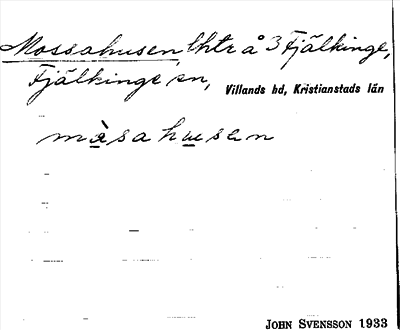 Mossahusen, lhtr å 3 Fjälkinge,
Fjälkinge sn,
Villands hd, Kristianstads län
màsahusen
JOHN SVENSSON 1933